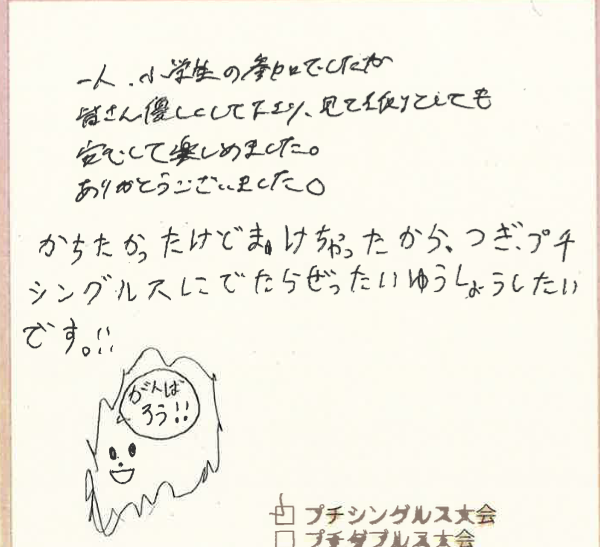 一人、小学生の参加でしたが
皆さん優しくして下さり、見ている側としても
安心して楽しめました。
ありがとうございました。
かちたかったけどまけちゃったから、つぎ、プチ
シングルスにでたらぜったいゆうしょうしたい
です。!!
がんば
ろう!!
プチシングルス大会
プチダブルス大会